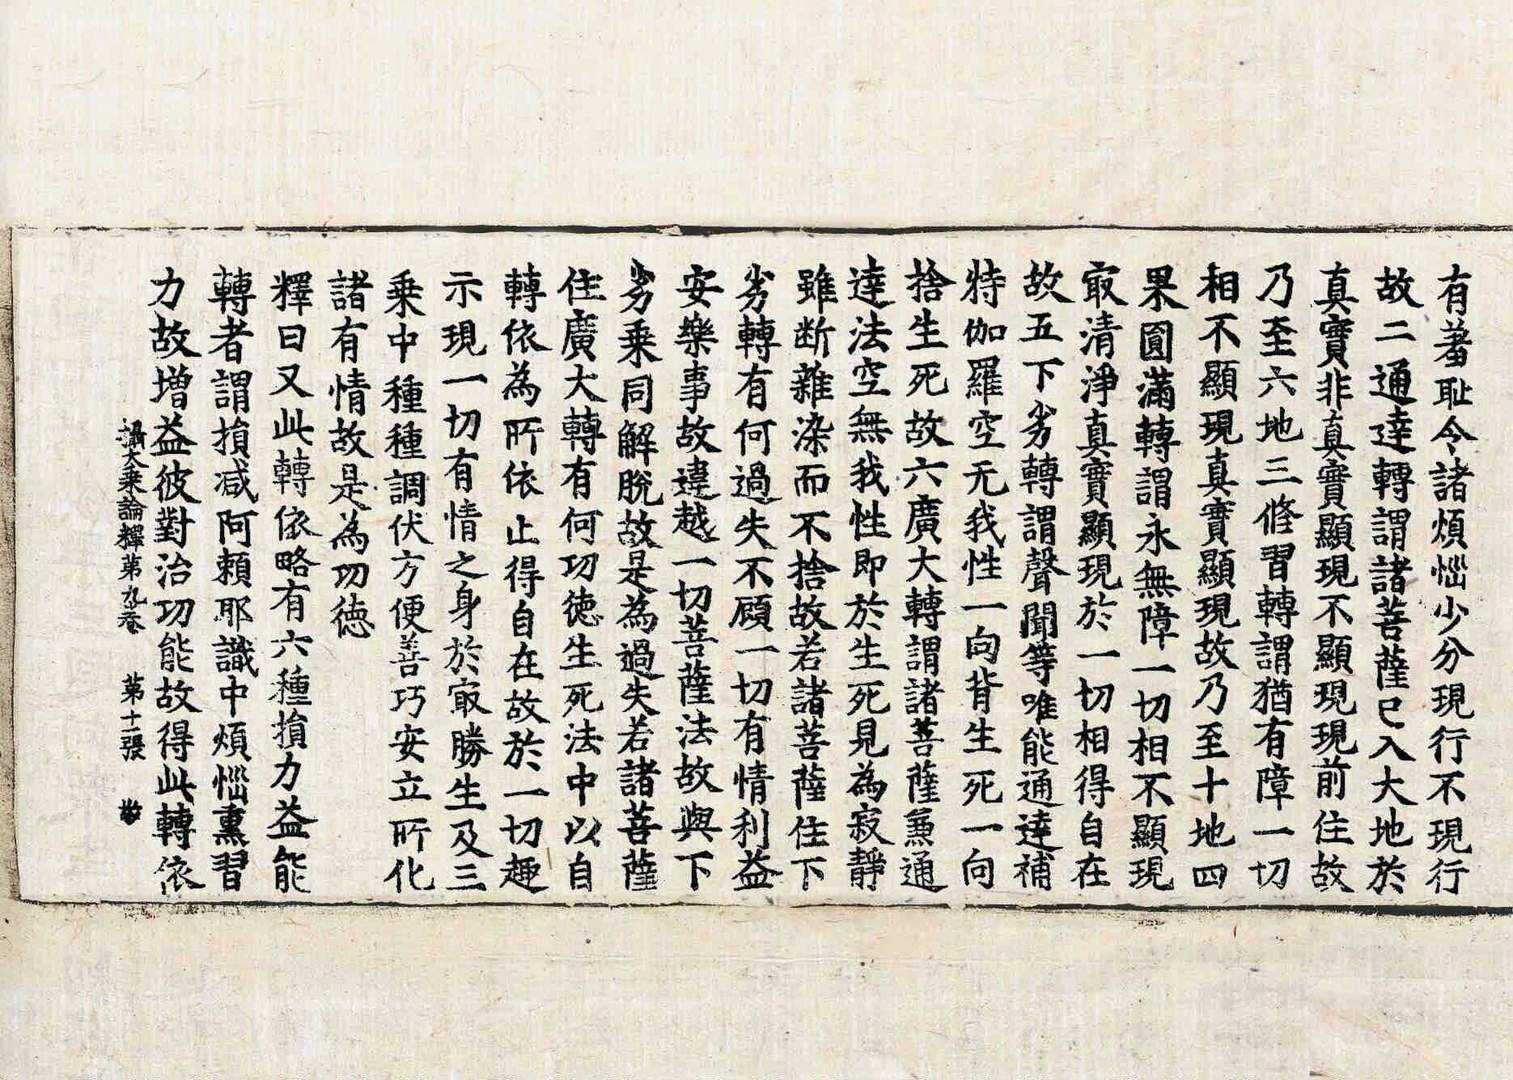 有羞耻令諸煩惱少分現行不現行
故二通達轉謂諸菩薩已入大地於
真實非真實顯現不顯現現前住故
乃至六地三修習轉謂猶有障一切
相不顯現真實顯現故乃至十地四
果圓滿轉謂永無障一切相不顯現
㝡清淨真實顯現於一切相得自在
故五下劣轉謂聲聞等唯能通達補
特伽羅空无我性一向背生死一向
捨生死故六廣大轉謂諸菩薩兼通
達法空無我性即於生死見為寂靜
雖断雜染而不捨故若諸菩薩住下
劣轉有何過失不顧一切有情利益
安樂事故違越一切菩薩法故與下
劣乗同解脫故是為過失若諸菩薩
住廣大轉有何功德生死法中以自
轉依為所依止得自在故於一切趣
示現一切有情之身於㝡勝生及三
乗中種種調伏方便善巧安立所化
諸有情故是為功德
釋曰又此轉依略有六種損力益能
轉者謂損减阿賴耶識中煩惱熏習
力故增益彼對治功能故得此轉依
攝大乗論釋第九卷　第十二張